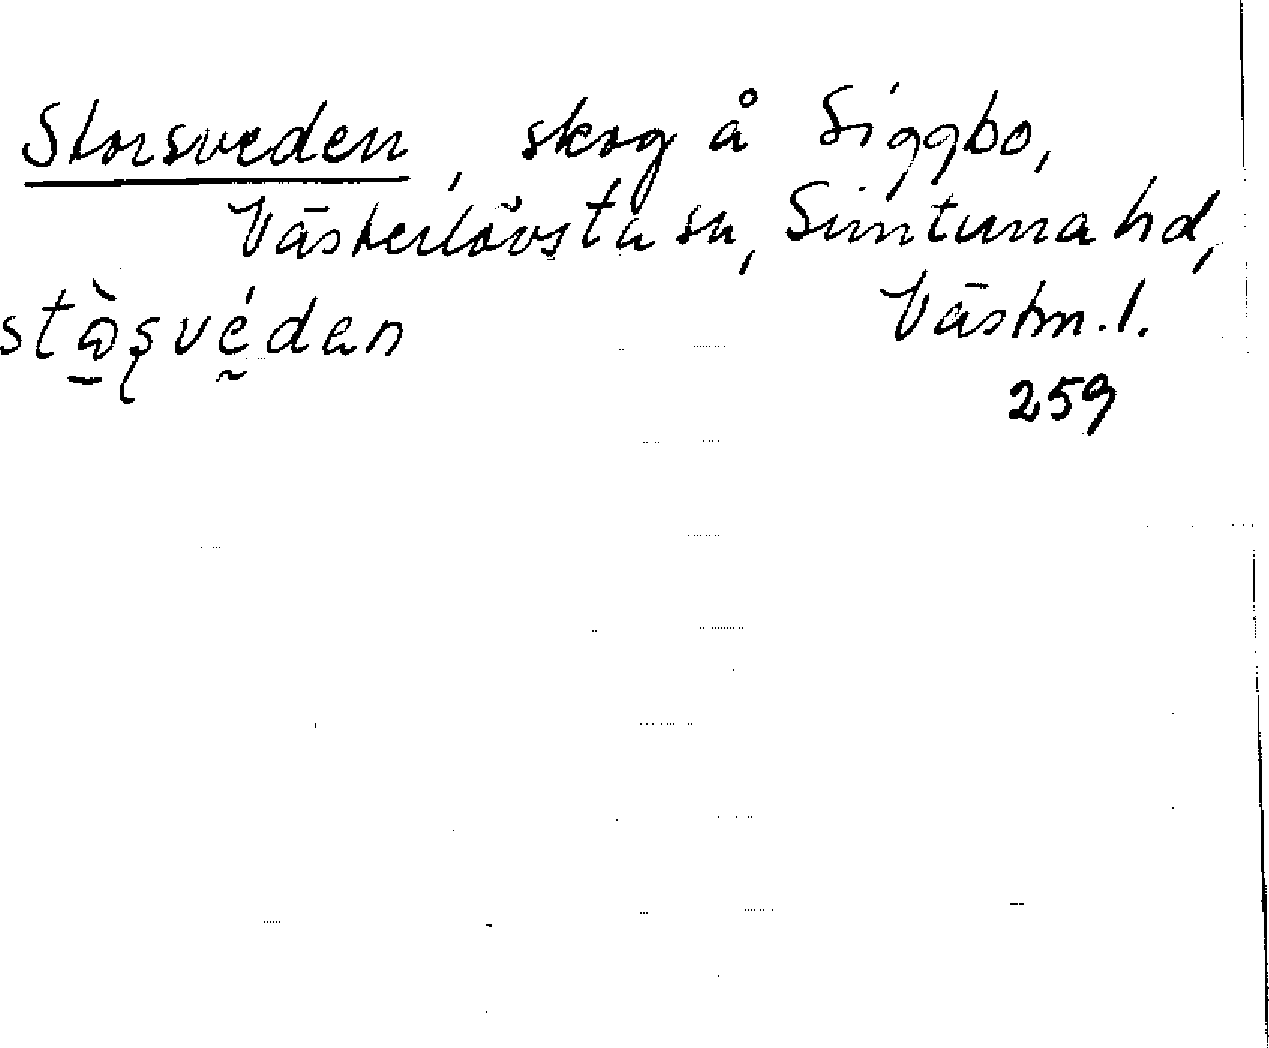 Storsveden, skog å Siggbo,
Västerlövsta sn, Simtuna hd,
Västm. l.
stɷ̱̀ʂvḛ́dan
259